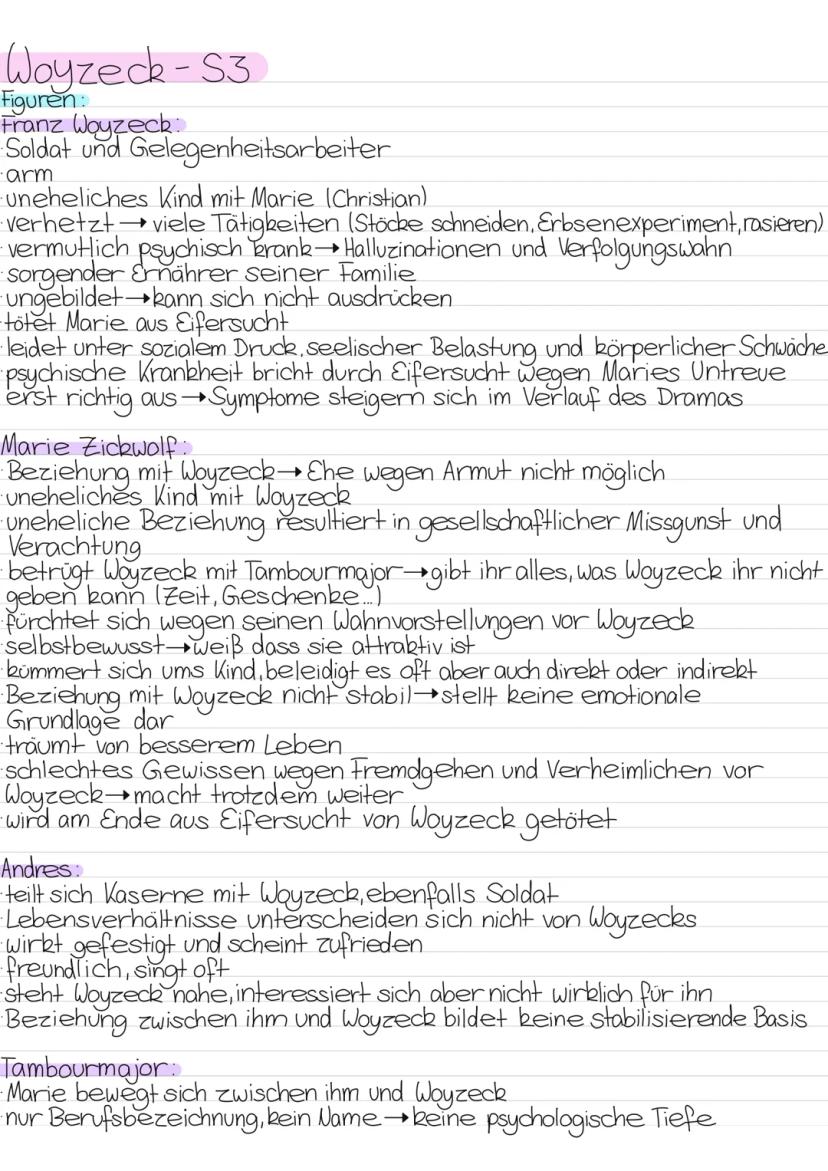 Woyzeck - S3
Figuren:
Franz Woyzeck:
·Soldat und Gelegenheitsarbeiter
·arm
·uneheliches Kind mit Marie (Christian)
·verhetzt → viele Tätigkeiten (Stöcke schneiden, Erbsenexperiment, rasieren)
·vermutlich psychisch krank → Halluzinationen und Verfolgungswahn
·sorgender Ernährer seiner Familie
·ungebildet → kann sich nicht ausdrücken
·tötet Marie aus Eifersucht
·leidet unter sozialem Druck, seelischer Belastung und körperlicher Schwäche
·psychische Krankheit bricht durch Eifersucht wegen Maries Untreue
erst richtig aus → Symptome steigern sich im Verlauf des Dramas
Marie Zickwolf:
·Beziehung mit Woyzeck → Ehe wegen Armut nicht möglich
·uneheliches Kind mit Woyzeck
·uneheliche Beziehung resultiert in gesellschaftlicher Missgunst und
Verachtung
·betrügt Woyzeck mit Tambourmajor → gibt ihr alles, was Woyzeck ihr nicht
geben kann (Zeit, Geschenke...)
·fürchtet sich wegen seinen Wahnvorstellungen vor Woyzeck
·selbstbewusst → weiß dass sie attraktiv ist
·kümmert sich ums Kind, beleidigt es oft aber auch direkt oder indirekt
·Beziehung mit Woyzeck nicht stabil → stellt keine emotionale
Grundlage dar
·träumt von besserem Leben
·schlechtes Gewissen wegen Fremdgehen und Verheimlichen vor
Woyzeck → macht trotzdem weiter
·wird am Ende aus Eifersucht von Woyzeck getötet
Andres:
·teilt sich Kaserne mit Woyzeck, ebenfalls Soldat
·Lebensverhältnisse unterscheiden sich nicht von Woyzecks
·wirkt gefestigt und scheint zufrieden
·freundlich, singt oft
·steht Woyzeck nahe, interessiert sich aber nicht wirklich für ihn
·Beziehung zwischen ihm und Woyzeck bildet keine stabilisierende Basis
Tambourmajor:
·Marie bewegt sich zwischen ihm und Woyzeck
·nur Berufsbezeichnung, kein Name → keine psychologische Tiefe